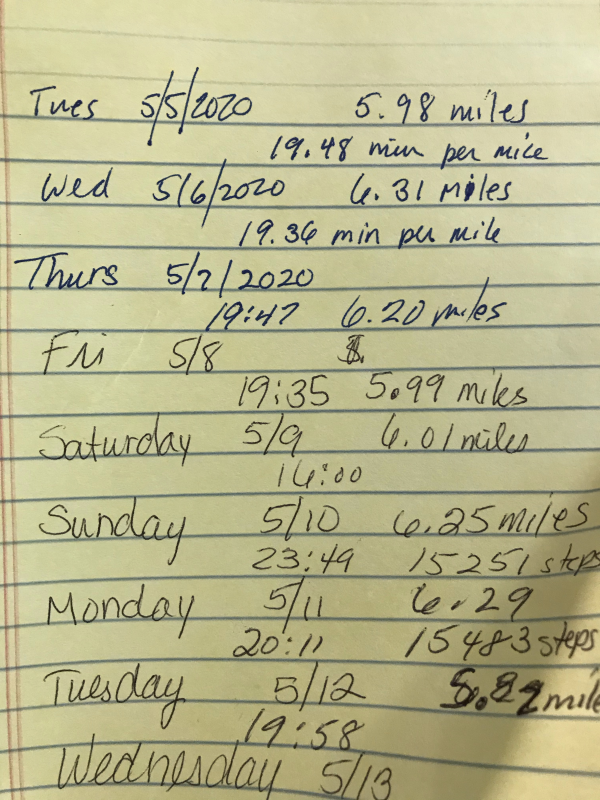 Tues 5/5/2020 5.98 miles
19.48 min per mile
Wed 5/6/2020 6.31 Miles
19.36 min per mile
Thurs 5/7/2020
19:47 6.20 miles
Fri 5/8
19:35 5.99 miles
Saturday 5/9 6.01 miles
16:00
Sunday 5/10 6.25 miles
23:49 15251 steps
Monday 5/11 6.29
20:11 15483 steps
Tuesday 5/12 mile
19:58
Wednesday 5/13